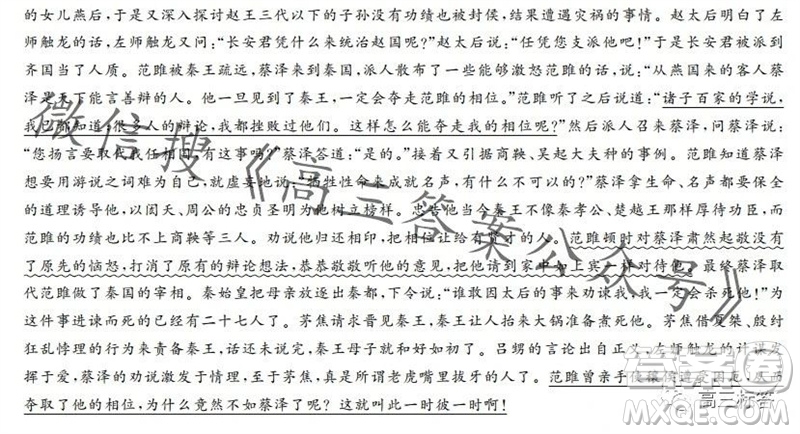 的女儿燕后，于是又深入探讨赵王三代以下的子孙没有功绩也被封侯，结果遭遇灾祸的事情。赵太后明白了左
师触龙的话，左师触龙又问：“长安君凭什么来统治赵国呢？”赵太后说：“任凭您支派他吧！”于是长安君被派到
齐国当了人质。范雎被秦王疏远，蔡泽来到秦国，派人散布了一些能够激怒范雎的话，说：“从燕国来的客人蔡
泽是天下能言善辩的人。他一旦见到了秦王，一定会夺走范雎的相位。”范雎听了之后说道：“诸子百家的学说，
我已都知道；很多人的辩论，我都挫败过他们。这样怎么能夺走我的相位呢？”然后派人召来蔡泽，问蔡泽说：
“您扬言要取代我任相国，有这事吗？”蔡泽答道：“是的。”接着又引据商鞅、吴起大夫种的事例。范雎知道蔡泽
想要用游说之词难为自己，就虚妄地说：“牺牲性命来成就名声，有什么不可以的？”蔡泽拿生命、名声都要保全
的道理诱导他，以闳夭、周公的忠贞圣明为他树立榜样。忠告他当今秦王不像秦孝公、楚越王那样厚待功臣，而
范雎的功绩也比不上商鞅等三人。劝说他归还相印，把相位让给有贤才的人。范雎顿时对蔡泽肃然起敬，没有
了原先的恼怒，打消了原有的辩论想法，恭恭敬敬听他的意见，把他请到家中如上宾一样对待他。最终蔡泽取
代范雎做了秦国的宰相。秦始皇把母亲放逐出秦都，下令说：“谁敢因太后的事来劝谏我，我一定会杀死他！”为
这件事进谏而死的已经有二十七人了。茅焦请求晋见秦王，秦王让人抬来大锅准备煮死他。茅焦借夏桀、殷纣
狂乱悖理的行为来责备秦王，话还未说完，秦王母子就和好如初了。吕甥的言论出自正义，左师触龙的计谋发
挥于爱，蔡泽的劝说激发于情理，至于茅焦，真是所谓老虎嘴里拔牙的人了。范雎曾亲手
夺取了他的相位，为什么竟然不如蔡泽了呢？这就叫此一时彼一时啊！
微信搜《高三答案公众号》
答案圈
MXQE.COM
高三标答